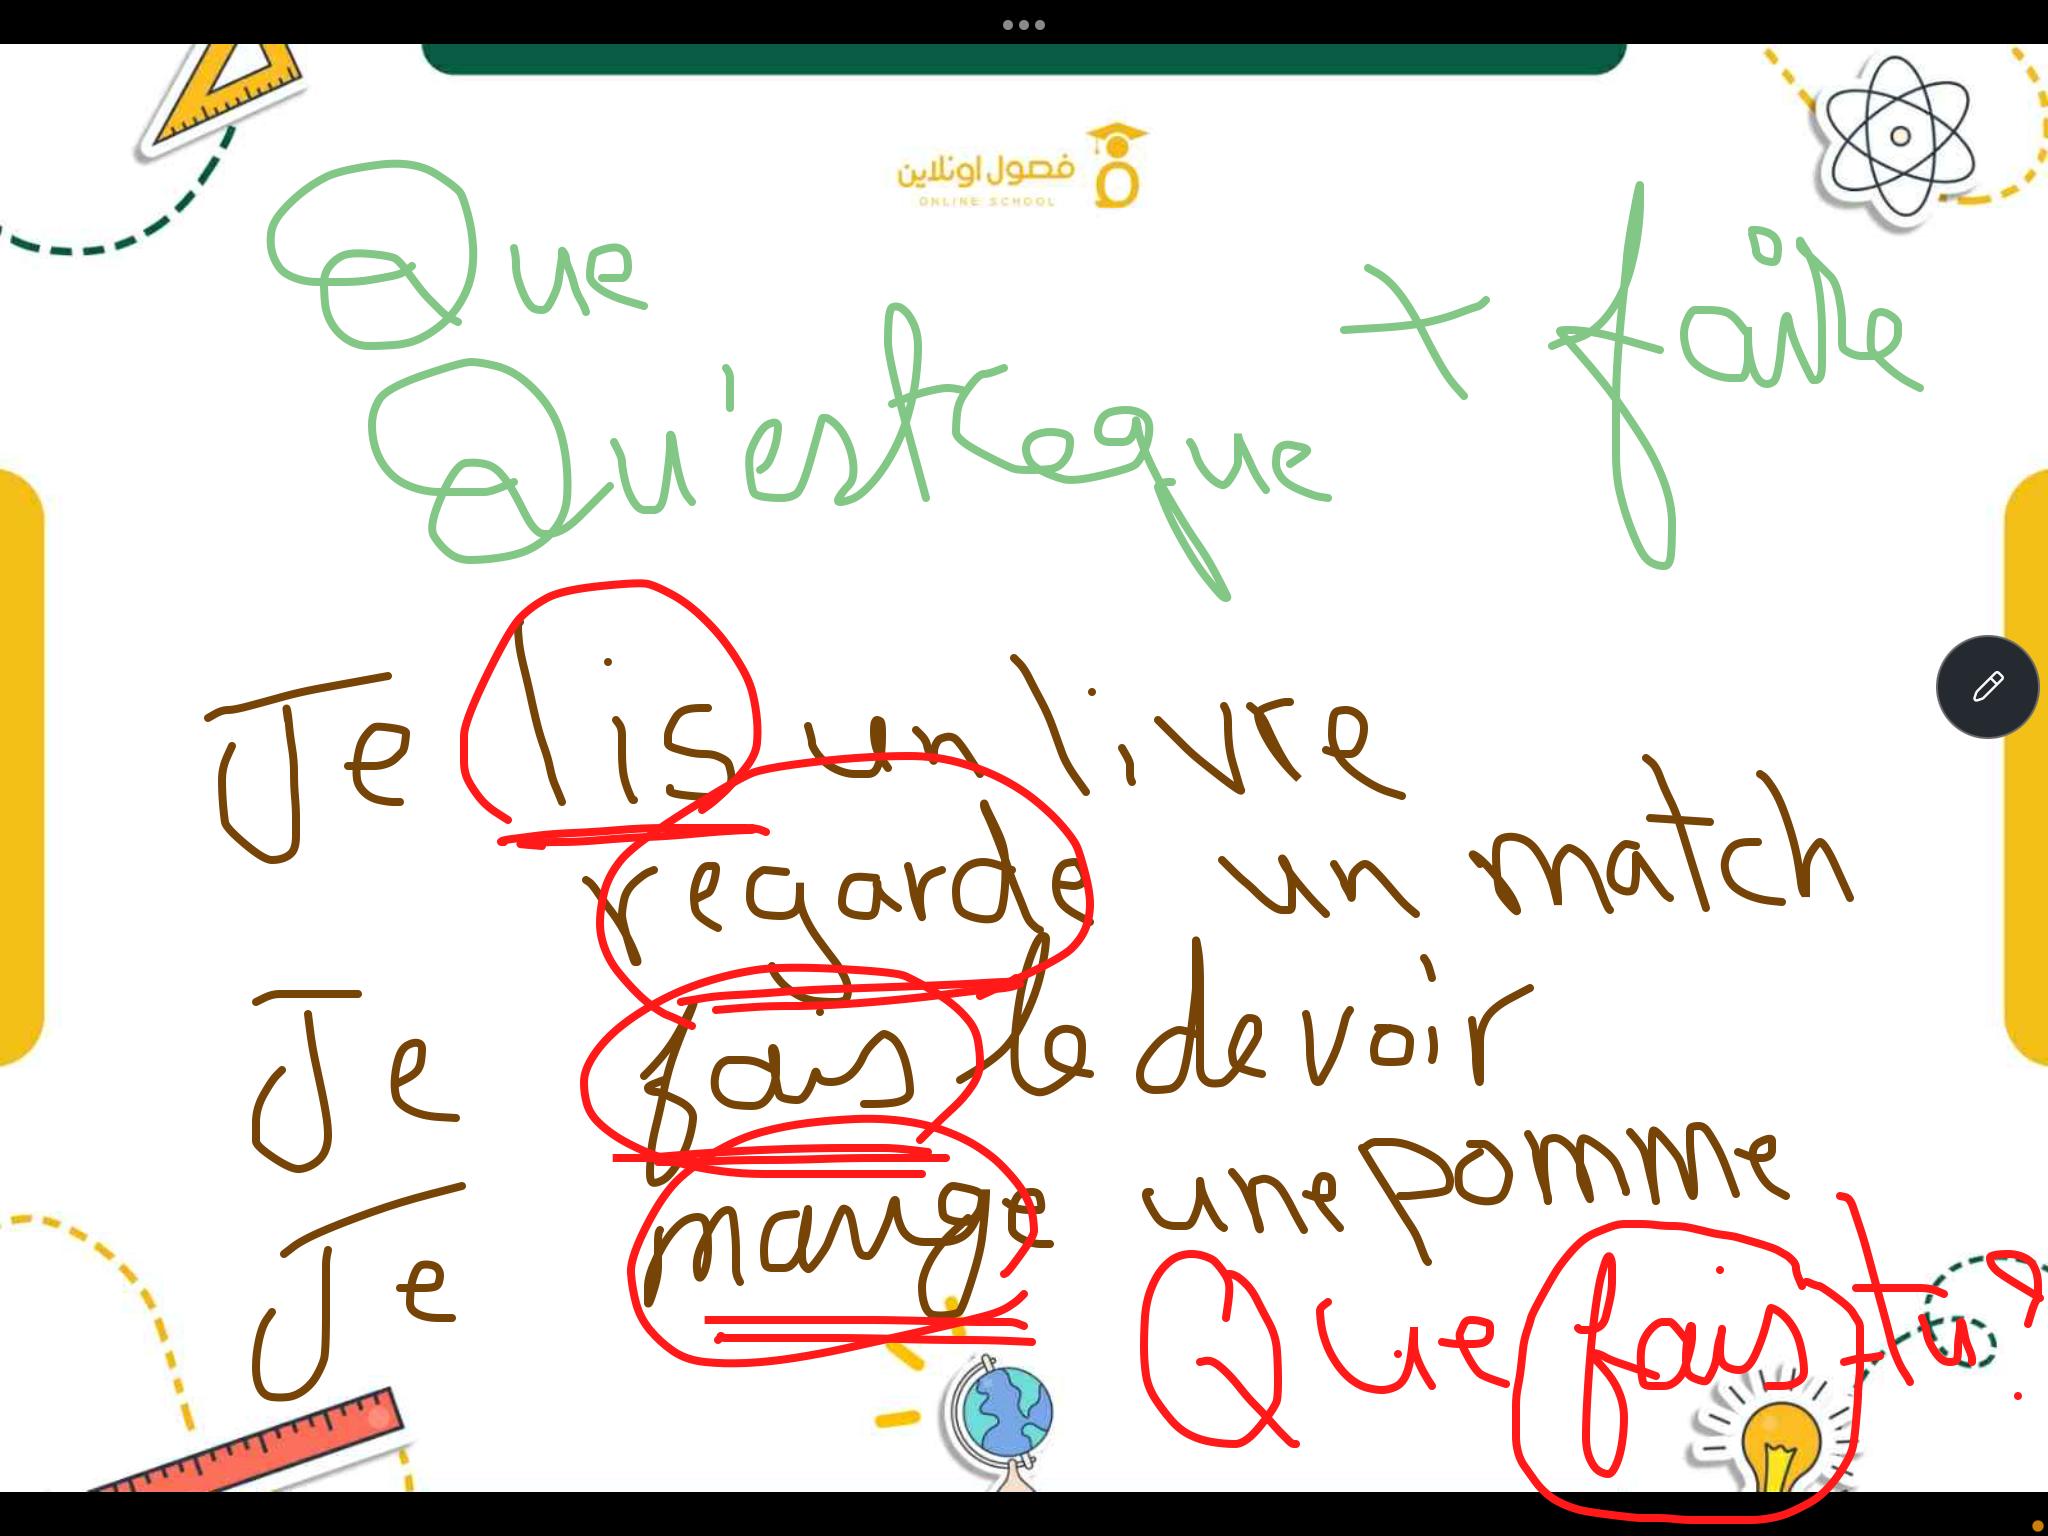 فصول اونلاين
ONLINE SCHOOL
Que
+ faire
Qu'est ce que
Je lis un livre
regarde un match
Je fais le devoir
Je mange une pomme
Que fais tu ?